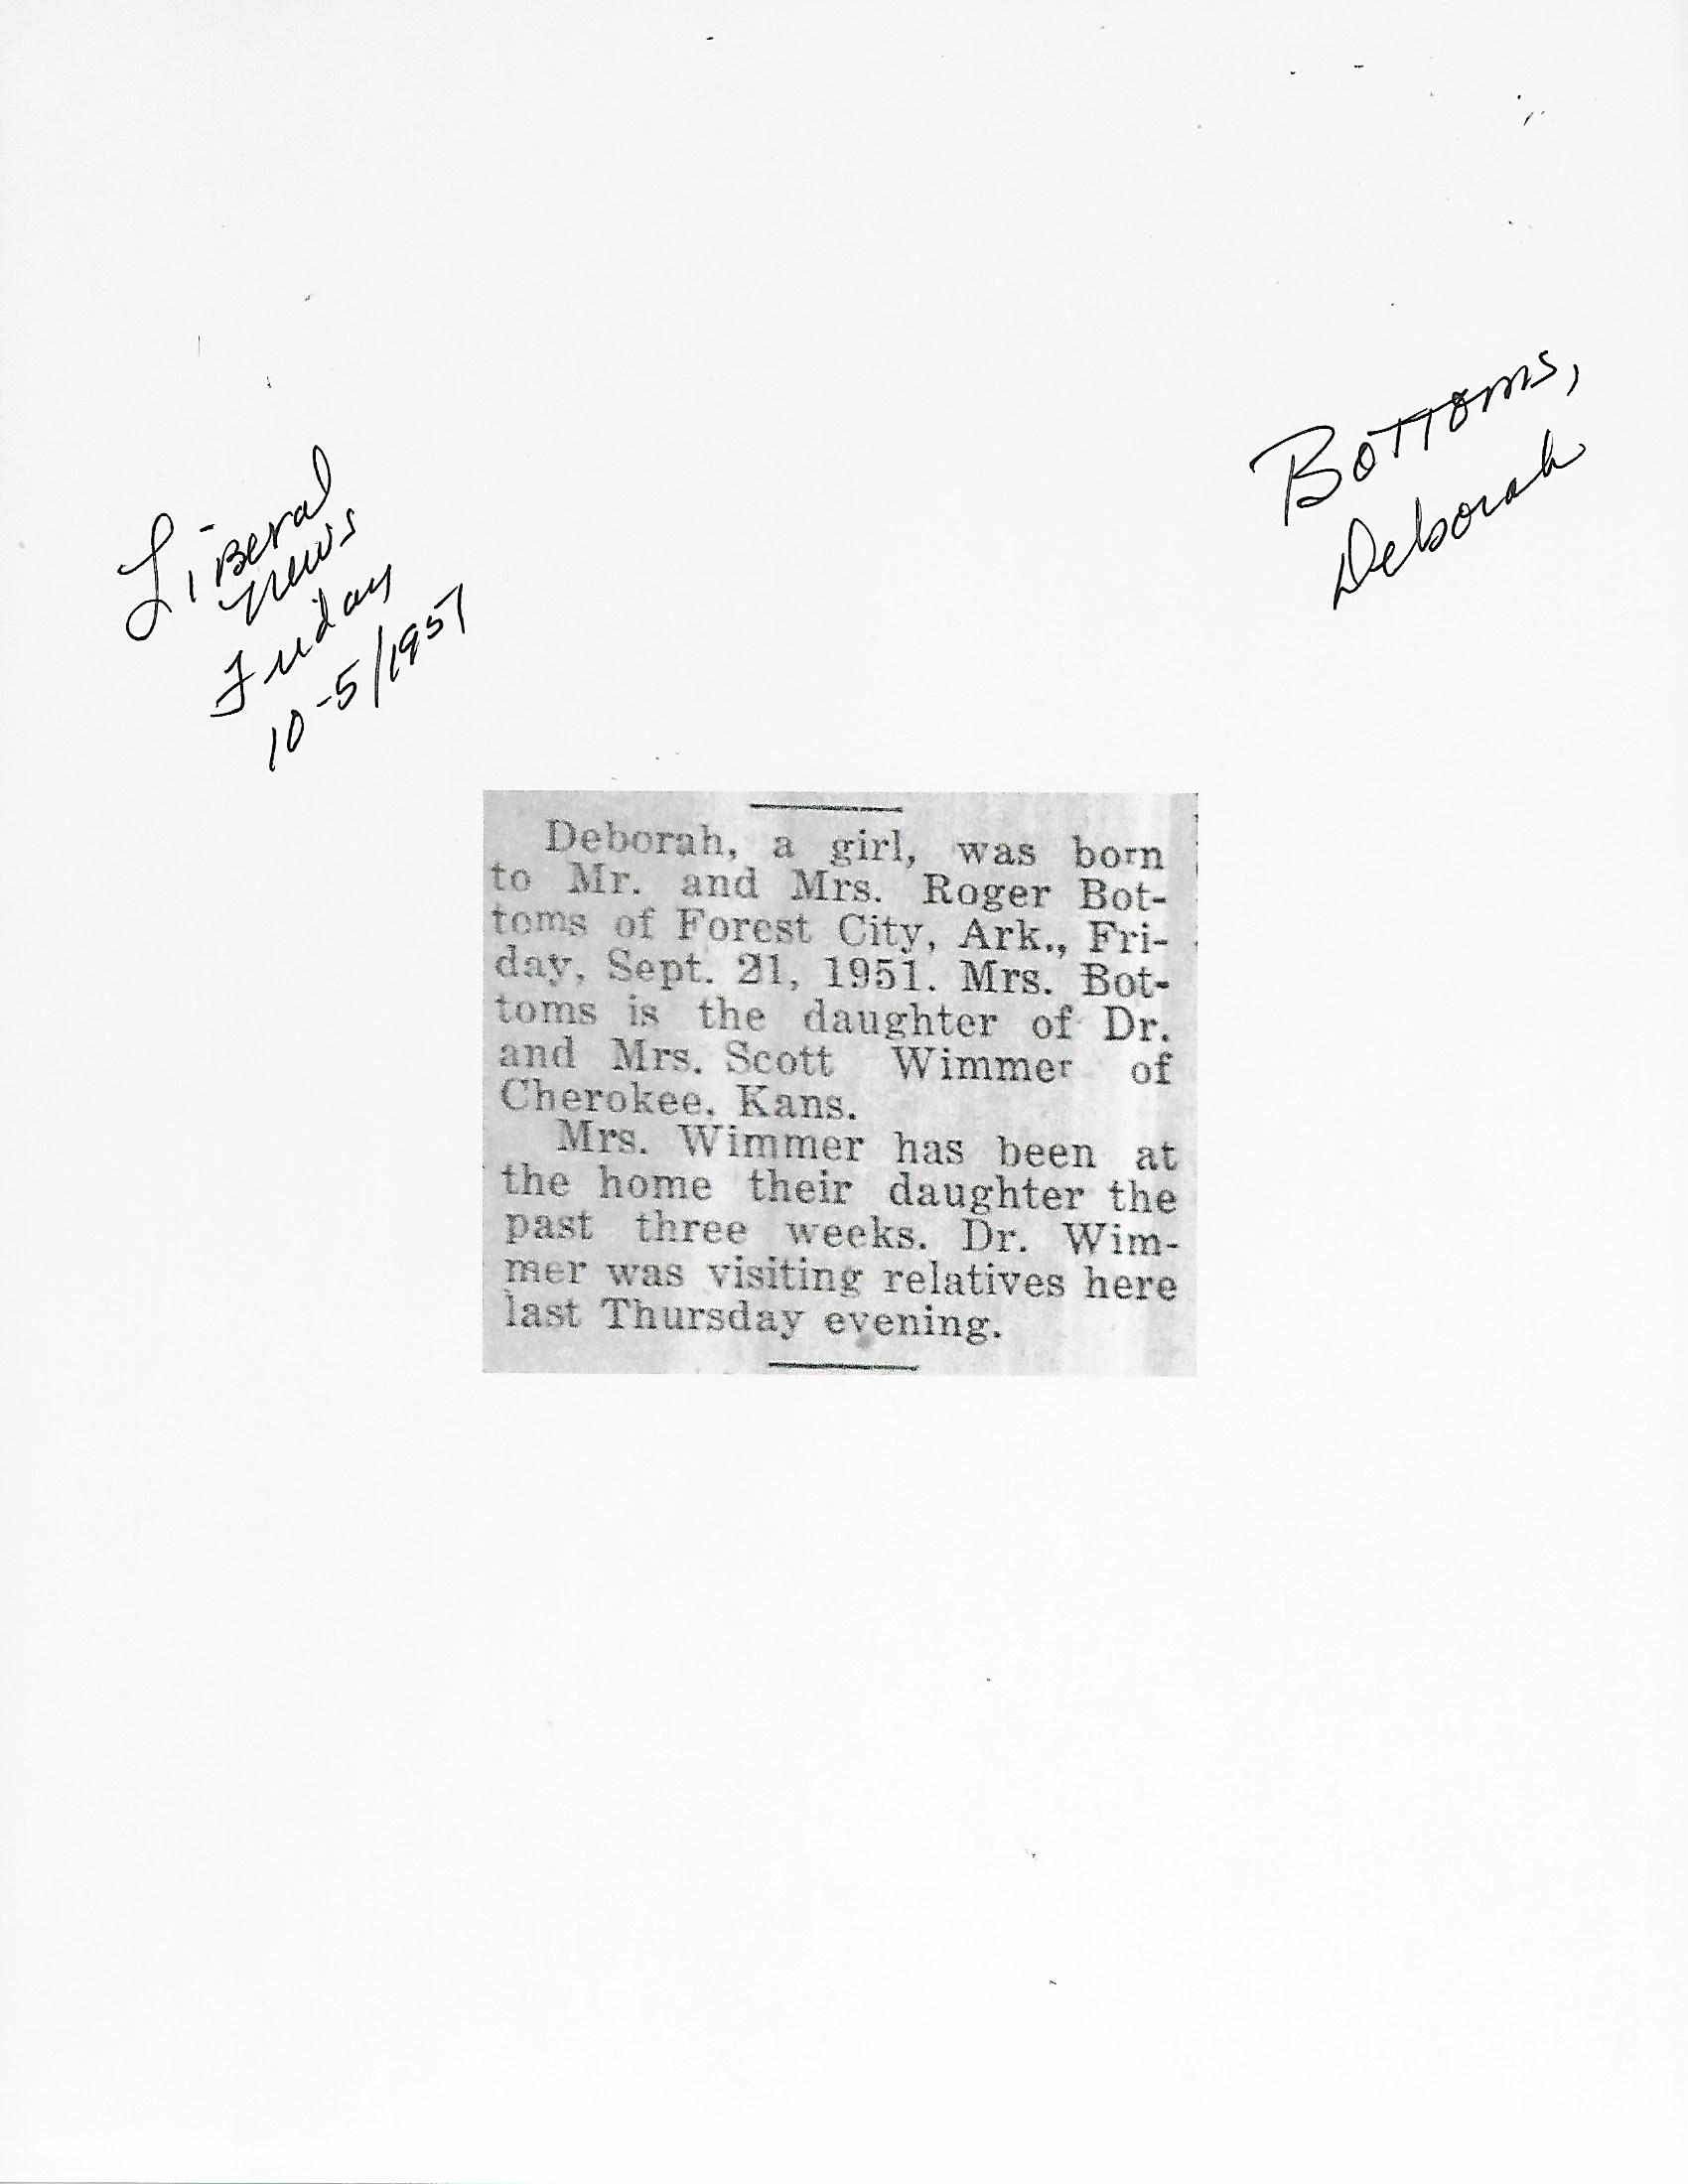 Bottoms,
Deborah
Liberal
News
Friday
10-5/1951
Deborah, a girl, was born
to Mr. and Mrs. Roger Bot-
toms of Forest City, Ark., Fri-
day, Sept. 21, 1951. Mrs. Bot-
toms is the daughter of Dr.
and Mrs. Scott Wimmer of
Cherokee, Kans.
Mrs. Wimmer has been at
the home their daughter the
past three weeks. Dr. Wim-
mer was visiting relatives here
last Thursday evening.